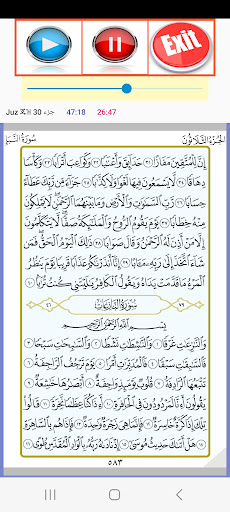 Exit
Juz जुज़ 30 جزء 47:18 26:47
سُورَةُ النَّبَإِ الجُزْءُ الثَّلَاثُونَ
إِنَّ لِلْمُتَّقِينَ مَفَازًا ٣١ حَدَآئِقَ وَأَعْنَٰبًا ٣٢ وَكَوَاعِبَ أَتْرَابًا ٣٣ وَكَأْسًا
دِهَاقًا ٣٤ لَّا يَسْمَعُونَ فِيهَا لَغْوًا وَلَا كِذَّٰبًا ٣٥ جَزَآءً مِّن رَّبِّكَ عَطَآءً
حِسَابًا ٣٦ رَّبِّ السَّمَٰوَٰتِ وَالْأَرْضِ وَمَا بَيْنَهُمَا الرَّحْمَٰنِ لَا يَمْلِكُونَ
مِنْهُ خِطَابًا ٣٧ يَوْمَ يَقُومُ الرُّوحُ وَالْمَلَٰٓئِكَةُ صَفًّا لَّا يَتَكَلَّمُونَ
إِلَّا مَنْ أَذِنَ لَهُ الرَّحْمَٰنُ وَقَالَ صَوَابًا ٣٨ ذَٰلِكَ الْيَوْمُ الْحَقُّ فَمَن
شَآءَ اتَّخَذَ إِلَىٰ رَبِّهِ مَـَٔابًا ٣٩ إِنَّآ أَنذَرْنَٰكُمْ عَذَابًا قَرِيبًا يَوْمَ يَنظُرُ
الْمَرْءُ مَا قَدَّمَتْ يَدَاهُ وَيَقُولُ الْكَافِرُ يَٰلَيْتَنِي كُنتُ تُرَٰبًا ٤٠
٧٩ سُورَةُ النَّازِعَاتِ ٤٦
بِسْمِ اللَّهِ الرَّحْمَٰنِ الرَّحِيمِ
وَالنَّٰزِعَٰتِ غَرْقًا ١ وَالنَّٰشِطَٰتِ نَشْطًا ٢ وَالسَّٰبِحَٰتِ سَبْحًا ٣
فَالسَّٰبِقَٰتِ سَبْقًا ٤ فَالْمُدَبِّرَٰتِ أَمْرًا ٥ يَوْمَ تَرْجُفُ الرَّاجِفَةُ ٦
تَتْبَعُهَا الرَّادِفَةُ ٧ قُلُوبٌ يَوْمَئِذٍ وَاجِفَةٌ ٨ أَبْصَٰرُهَا خَٰشِعَةٌ ٩
يَقُولُونَ أَءِنَّا لَمَرْدُودُونَ فِي الْحَافِرَةِ ١٠ أَءِذَا كُنَّا عِظَٰمًا نَّخِرَةً ١١
قَالُوا تِلْكَ إِذًا كَرَّةٌ خَاسِرَةٌ ١٢ فَإِنَّمَا هِيَ زَجْرَةٌ وَٰحِدَةٌ ١٣ فَإِذَا هُم بِالسَّاهِرَةِ
١٤ هَلْ أَتَىٰكَ حَدِيثُ مُوسَىٰٓ ١٥ إِذْ نَادَىٰهُ رَبُّهُ بِالْوَادِ الْمُقَدَّسِ طُوًى ١٦
٥٨٣